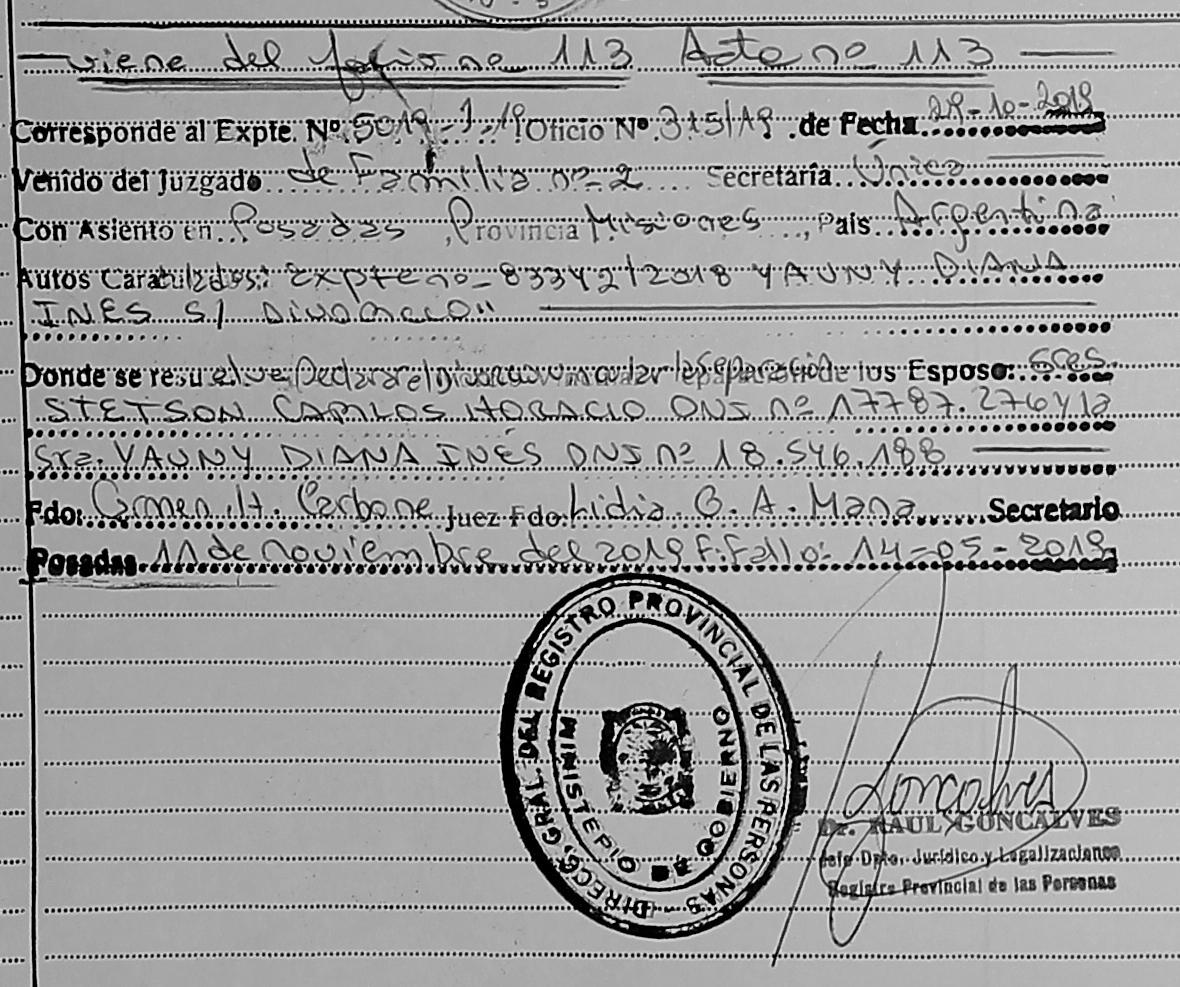 viene del folio no 113 Acta no 113
Corresponde al Expte. Nº 5019-J-19 Oficio Nº 315/19 de Fecha 29-10-2019
Venido del Juzgado de Familia nº 2 Secretaría Única
Con Asiento en Posadas, Provincia Misiones, País Argentina
Autos Caratulados: Expte nº 83342/2018 YAUNY DIANA
INES S/ Divorcio"
Donde se resuelve Declarar el Divorcio vincular la Separación de los Esposo: Sres.
STETSON CARLOS HORACIO DNI nº 17787.276 y la
Sra. YAUNY DIANA INÉS DNI nº 18.546.188
Fdo: Carmen H. Carbone Juez Fdo. Lidia G. A. Mana Secretario
Posadas 11 de noviembre del 2019 F. Fallo: 14-05-2019
DIRECC. GRAL DEL REGISTRO PROVINCIAL DE LAS PERSONAS
MINISTERIO DE GOBIERNO
Goncalves
Dr. RAUL GONCALVES
Jefe Dpto. Jurídico y Legalizaciones
Registro Provincial de las Personas